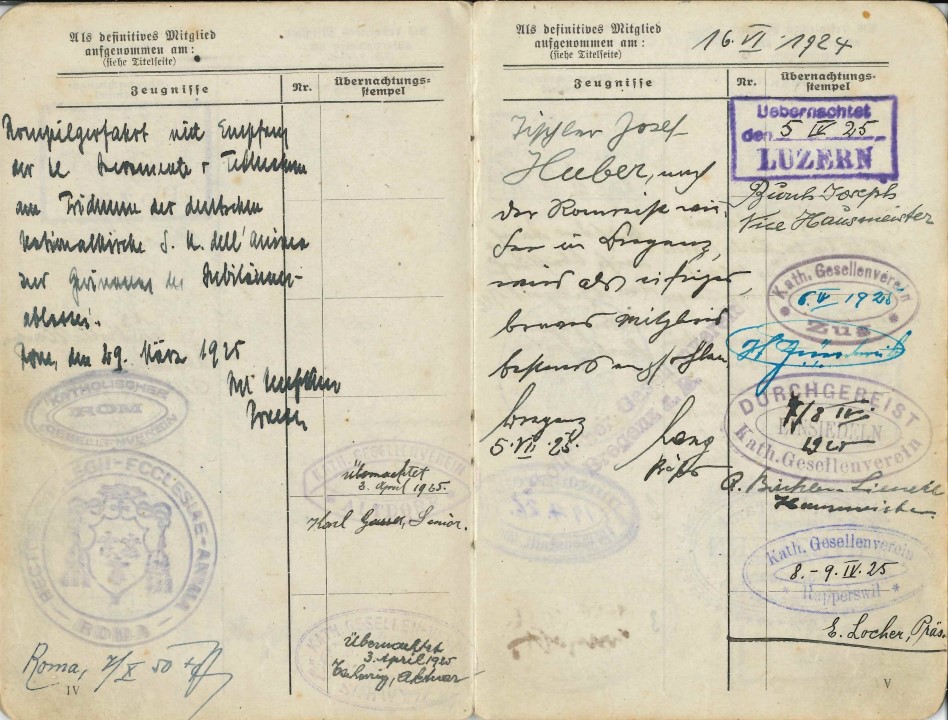 Als definitives Mitglied
aufgenommen am:
(siehe Titelseite)
Zeugnisse
Nr.
Übernachtungs-
stempel
Rompilgerfahrt mit Empfang
der hl
am Triduum der deutschen
Nationalkirche S. M. dell'Anima
und Gewinnung des Jubiläums-
ablasses.
Rom, den 29. März 1925
KATHOLISCHER
ROM
GESELLENVEREIN
ECCLESIAE
ROMA
Roma,
IV
KATH. GESELLENVEREIN
Übernachtet
3. April 1925.
Karl Gasser, Senior.
KATH. GESELLEN
Übernachtet
3 April 1925
Aktuar
Als definitives Mitglied
aufgenommen am:
(siehe Titelseite)
16. VI. 1924
Zeugnisse
Nr.
Übernachtungs-
stempel
Tischler Josef
Huber, nach
der Romreise wie-
der in Bregenz,
wird als eifriger,
braves Mitglied
bestens empfohlen
Bregenz
5. VII. 25.
Lang
Präses
Uebernachtet
den 5 IV 25
LUZERN
Joseph
Vice Hausmeister
Kath. Gesellenverein
6. IV 1925
Zug
DURCHGEREIST
7/8 IV.
EINSIEDELN
1925
Kath. Gesellenverein
Hausmeister
Kath. Gesellenverein
8. - 9. IV. 25
Rapperswil
E. Locher, Präs.
V